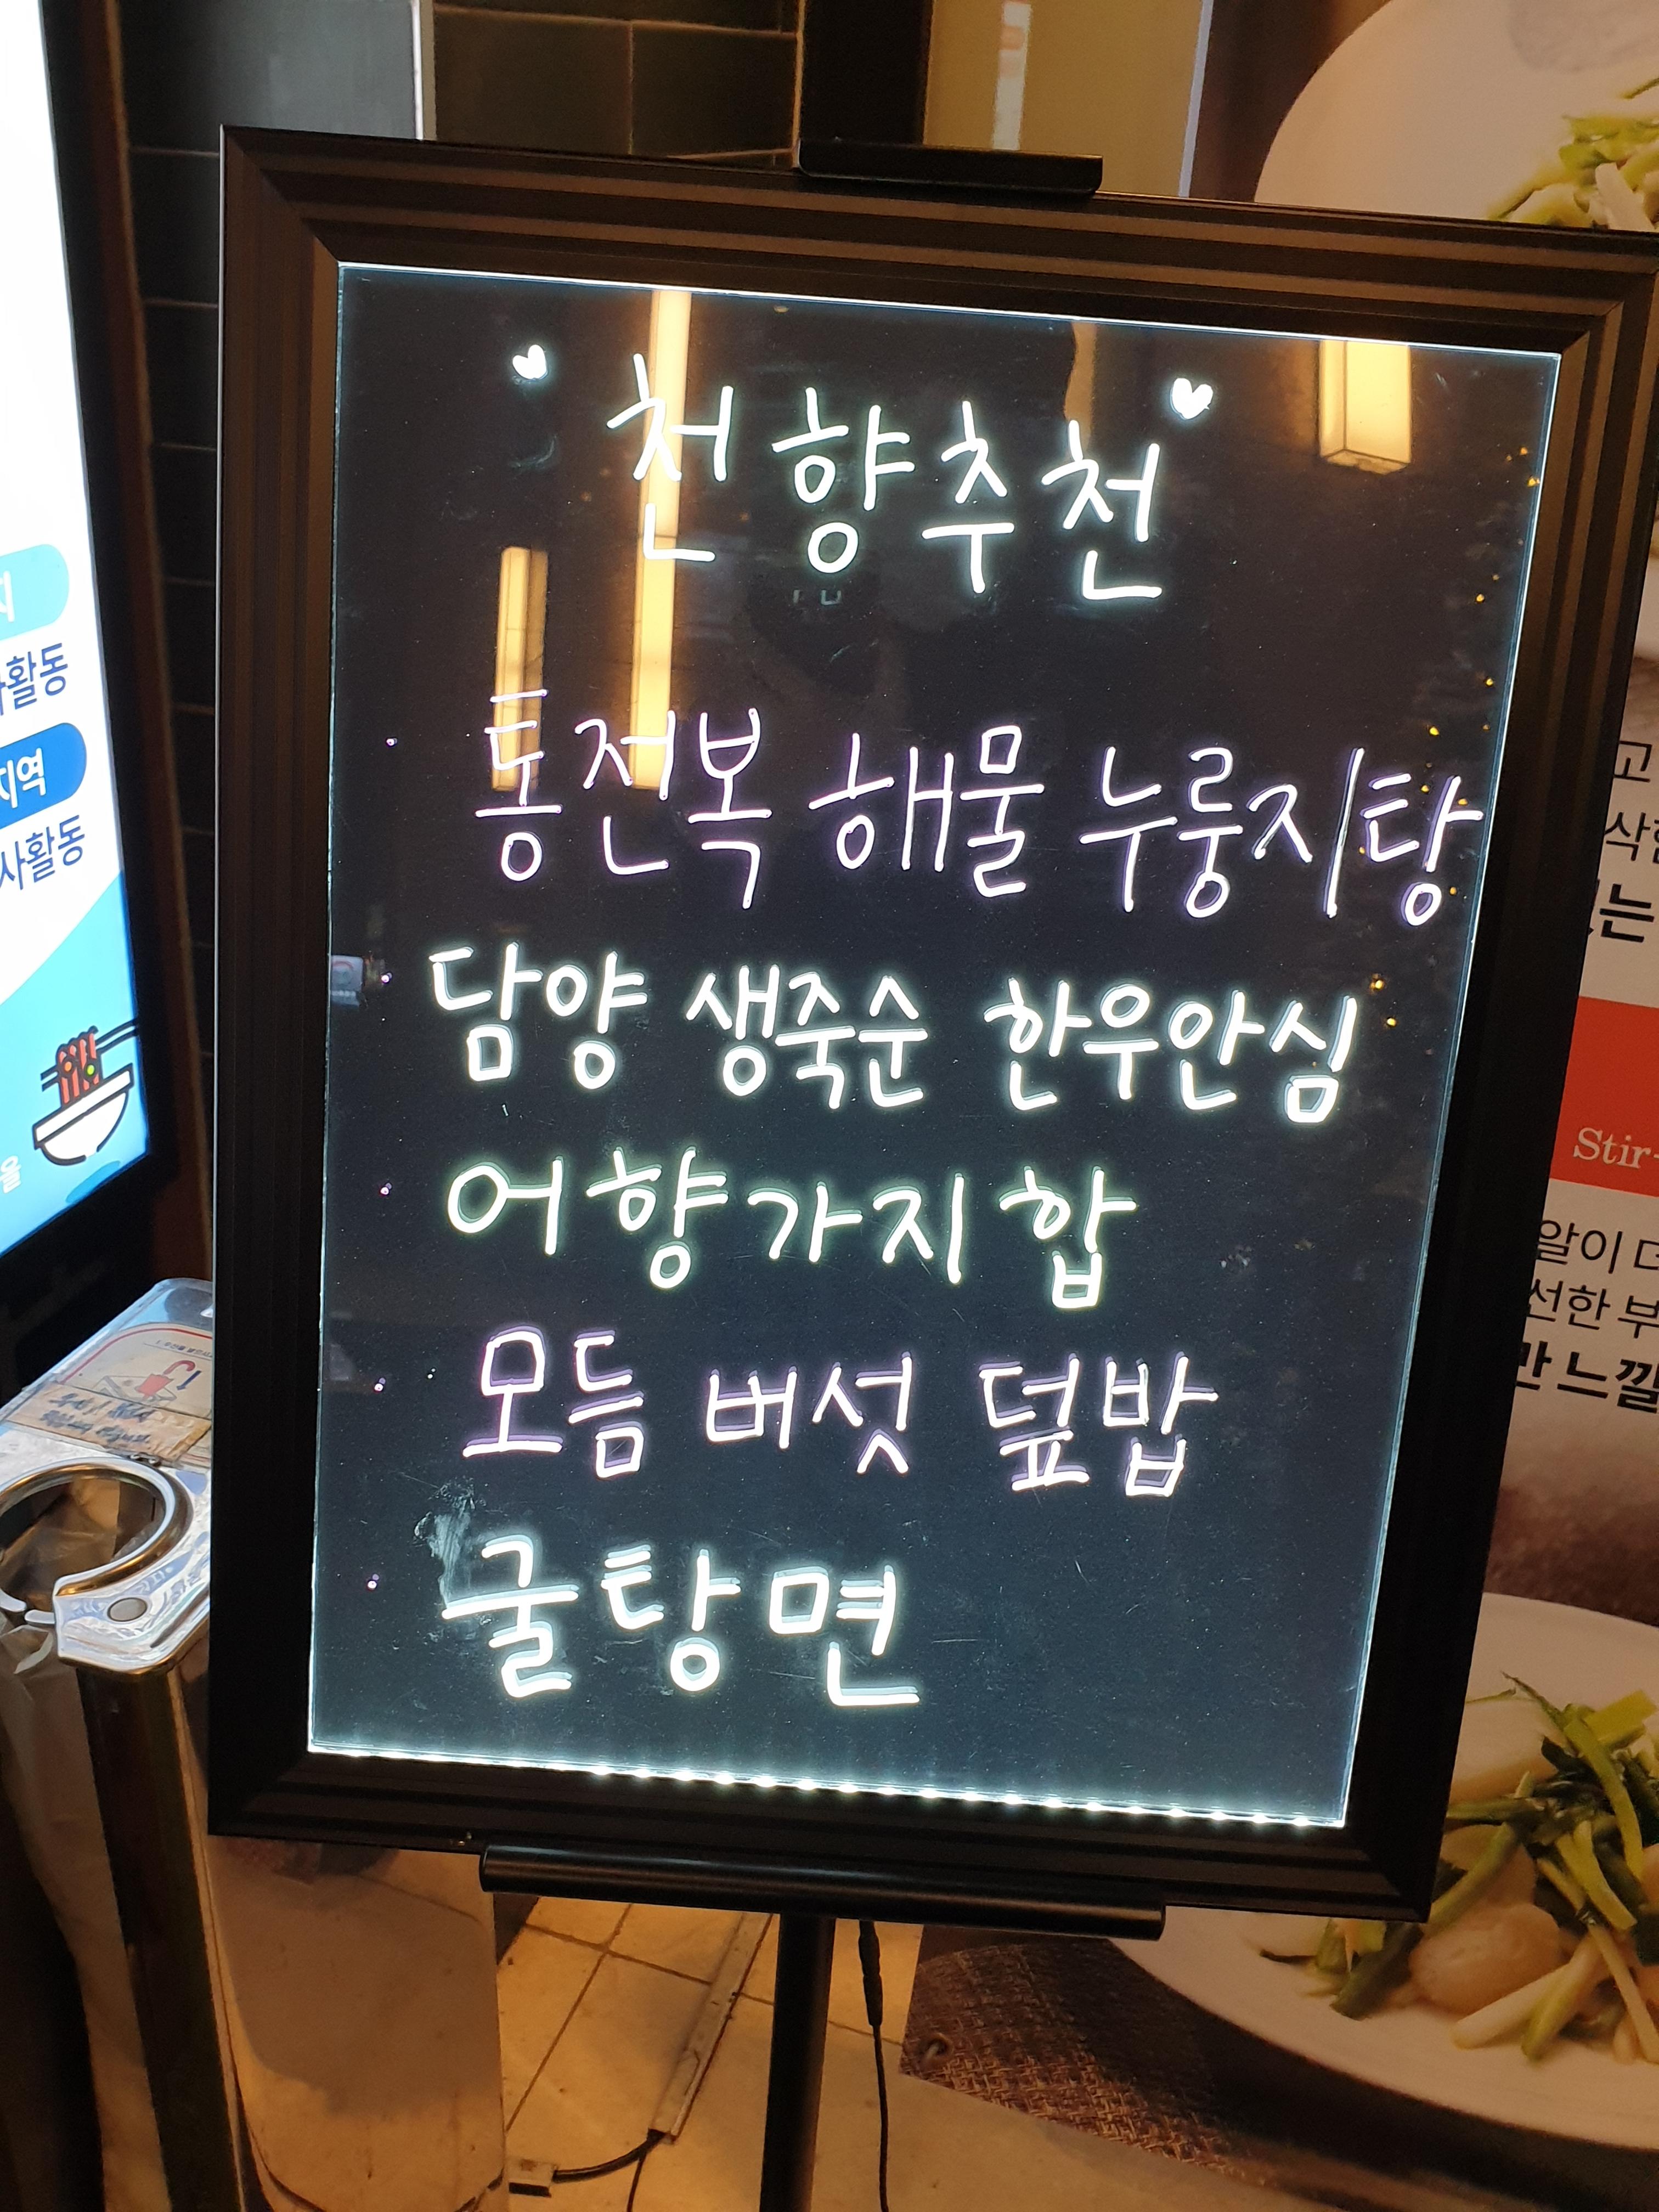 천향추천
통전복 해물 누룽지탕
담양 생죽순 한우안심
어향가지합
모듬 버섯 덮밥
굴탕면
활동
지역
사활동
Stir-
알이 더
선한 부
만 느낄